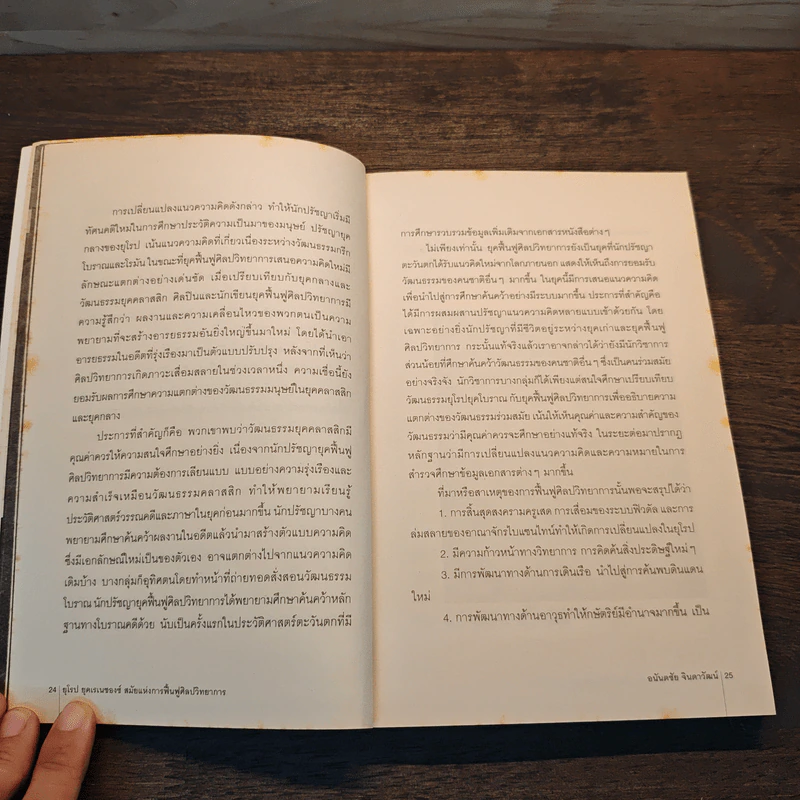 การเปลี่ยนแปลงแนวความคิดดังกล่าว ทำให้นักปรัชญาเริ่มมี
ทัศนคติใหม่ในการศึกษาประวัติความเป็นมาของมนุษย์ ปรัชญายุค
กลางของยุโรป เน้นแนวความคิดที่เกี่ยวเนื่องระหว่างวัฒนธรรมกรีก
โบราณและโรมัน ในขณะที่ยุคฟื้นฟูศิลปวิทยาการเสนอความคิดใหม่มี
ลักษณะแตกต่างอย่างเด่นชัด เมื่อเปรียบเทียบกับยุคกลางและ
วัฒนธรรมยุคคลาสสิก ศิลปินและนักเขียนยุคฟื้นฟูศิลปวิทยาการมี
ความรู้สึกว่า ผลงานและความเคลื่อนไหวของพวกตนเป็นความ
พยายามที่จะสร้างอารยธรรมอันยิ่งใหญ่ขึ้นมาใหม่ โดยได้นำเอา
อารยธรรมในอดีตที่รุ่งเรืองมาเป็นตัวแบบปรับปรุง หลังจากที่เห็นว่า
ศิลปวิทยาการเกิดภาวะเสื่อมสลายในช่วงเวลาหนึ่ง ความเชื่อนี้ยัง
ยอมรับผลการศึกษาความแตกต่างของวัฒนธรรมมนุษย์ในยุคคลาสสิก
และยุคกลาง
ประการที่สำคัญก็คือ พวกเขาพบว่าวัฒนธรรมยุคคลาสสิกมี
คุณค่าควรให้ความสนใจศึกษาอย่างยิ่ง เนื่องจากนักปรัชญายุคฟื้นฟู
ศิลปวิทยาการมีความต้องการเลียนแบบ แบบอย่างความรุ่งเรืองและ
ความสำเร็จเหมือนวัฒนธรรมคลาสสิก ทำให้พยายามเรียนรู้
ประวัติศาสตร์วรรณคดีและภาษาในยุคก่อนมากขึ้น นักปรัชญาบางคน
พยายามศึกษาค้นคว้าผลงานในอดีตแล้วนำมาสร้างตัวแบบความคิด
ซึ่งมีเอกลักษณ์ใหม่เป็นของตัวเอง อาจแตกต่างไปจากแนวความคิด
เดิมบ้าง บางกลุ่มก็อุทิศตนโดยทำหน้าที่ถ่ายทอดสั่งสอนวัฒนธรรม
โบราณ นักปรัชญายุคฟื้นฟูศิลปวิทยาการได้พยายามศึกษาค้นคว้าหลัก
ฐานทางโบราณคดีด้วย นับเป็นครั้งแรกในประวัติศาสตร์ตะวันตกที่มี
24 ยุโรป ยุคเรเนซองซ์ สมัยแห่งการฟื้นฟูศิลปวิทยาการ
การศึกษารวบรวมข้อมูลเพิ่มเติมจากเอกสารหนังสือต่างๆ
ไม่เพียงเท่านั้น ยุคฟื้นฟูศิลปวิทยาการยังเป็นยุคที่นักปรัชญา
ตะวันตกได้รับแนวคิดใหม่จากโลกภายนอก แสดงให้เห็นถึงการยอมรับ
วัฒนธรรมของคนชาติอื่นๆ มากขึ้น ในยุคนี้มีการเสนอแนวความคิด
เพื่อนำไปสู่การศึกษาค้นคว้าอย่างมีระบบมากขึ้น ประการที่สำคัญคือ
ได้มีการผสมผสานปรัชญาแนวความคิดหลายแบบเข้าด้วยกัน โดย
เฉพาะอย่างยิ่งนักปรัชญาที่มีชีวิตอยู่ระหว่างยุคเก่าและยุคฟื้นฟู
ศิลปวิทยาการ กระนั้นแท้จริงแล้วเราอาจกล่าวได้ว่ายังมีนักวิชาการ
ส่วนน้อยที่ศึกษาค้นคว้าวัฒนธรรมของคนชาติอื่นๆ ซึ่งเป็นคนร่วมสมัย
อย่างจริงจัง นักวิชาการบางกลุ่มก็ได้เพียงแต่สนใจศึกษาเปรียบเทียบ
วัฒนธรรมยุโรปยุคโบราณ กับยุคฟื้นฟูศิลปวิทยาการเพื่ออธิบายความ
แตกต่างของวัฒนธรรมร่วมสมัย เน้นให้เห็นคุณค่าและความสำคัญของ
วัฒนธรรมว่ามีคุณค่าควรจะศึกษาอย่างแท้จริง ในระยะต่อมาปรากฏ
หลักฐานว่ามีการเปลี่ยนแปลงแนวความคิดและความหมายในการ
สำรวจศึกษาข้อมูลเอกสารต่างๆ มากขึ้น
ที่มาหรือสาเหตุของการฟื้นฟูศิลปวิทยาการนั้นพอจะสรุปได้ว่า
1. การสิ้นสุดสงครามครูเสด การเสื่อมของระบบฟิวดัล และการ
ล่มสลายของอาณาจักรไบแซนไทน์ทำให้เกิดการเปลี่ยนแปลงในยุโรป
2. มีความก้าวหน้าทางวิทยาการ การคิดค้นสิ่งประดิษฐ์ใหม่ๆ
3. มีการพัฒนาทางด้านการเดินเรือ นำไปสู่การค้นพบดินแดน
ใหม่
4. การพัฒนาทางด้านอาวุธทำให้กษัตริย์มีอำนาจมากขึ้น เป็น
อนันตชัย จินดาวัฒน์ 25